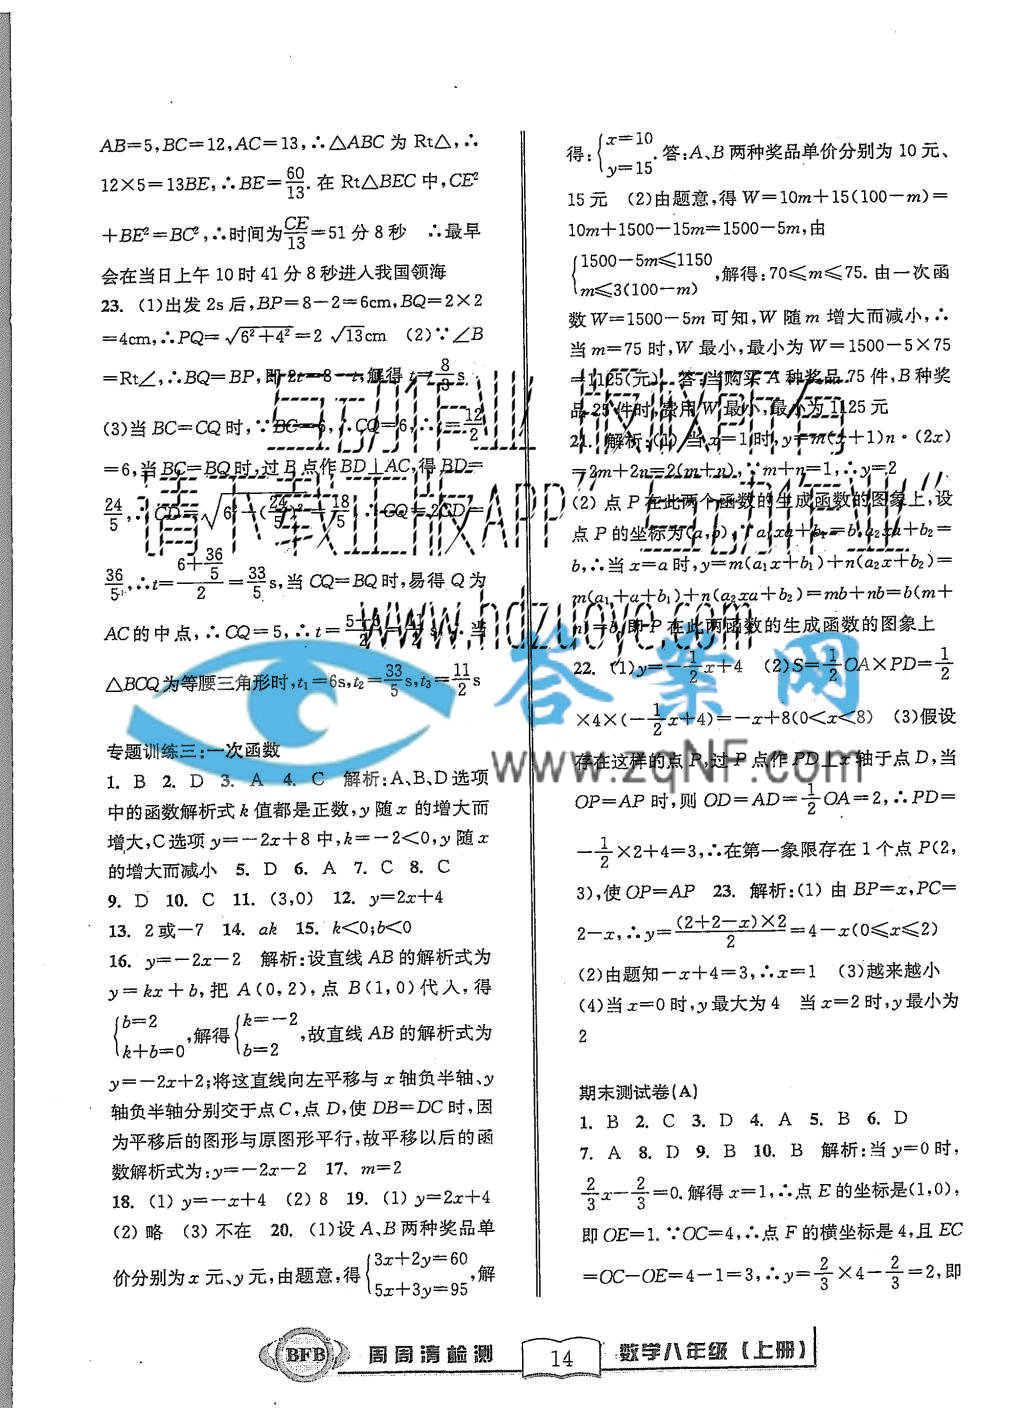 AB=5,BC=12,AC=13,∴△ABC 为 Rt△,∴
12×5=13BE,∴BE=60/13.在 Rt△BEC 中,CE²
+BE²=BC²,∴时间为CE/13=51 分 8 秒 ∴最早
会在当日上午 10 时 41 分 8 秒进入我国领海
23. (1)出发 2s 后,BP=8-2=6cm,BQ=2×2
=4cm,∴PQ=√(6²+4²)=2√13cm (2)∵∠B
=Rt∠,∴BQ=BP,即 2t=8-t,解得 t=8/3 s
(3)当 BC=CQ 时,∵BC=6,∴CQ=6,∴t=12/2
=6,当 BC=BQ 时,过 B 点作 BD⊥AC,得 BD=
24/5,∴CD=√(6²-(24/5)²)=18/5,∴CQ=2CD=
36/5,∴t=(6+36/5)/2=33/5 s,当 CQ=BQ 时,易得 Q 为
AC 的中点,∴CQ=5,∴t= s,∴当
△BCQ 为等腰三角形时,t₁=6s,t₂=33/5 s,t₃=11/2 s
专题训练三:一次函数
1. B 2. D 3. A 4. C 解析:A、B、D 选项
中的函数解析式 k 值都是正数,y 随 x 的增大而
增大,C 选项 y=-2x+8 中,k=-2<0,y 随 x
的增大而减小 5. D 6. A 7. C 8. C
9. D 10. C 11. (3,0) 12. y=2x+4
13. 2 或-7 14. ak 15. k<0;b<0
16. y=-2x-2 解析:设直线 AB 的解析式为
y=kx+b,把 A(0,2),点 B(1,0)代入,得
{b=2 k+b=0,解得{k=-2 b=2,故直线 AB 的解析式为
y=-2x+2;将这直线向左平移与 x 轴负半轴、y
轴负半轴分别交于点 C,点 D,使 DB=DC 时,因
为平移后的图形与原图形平行,故平移以后的函
数解析式为:y=-2x-2 17. m=2
18. (1) y=-x+4 (2) 8 19. (1) y=2x+4
(2) 略 (3) 不在 20. (1)设 A、B 两种奖品单
价分别为 x 元、y 元,由题意,得{3x+2y=60 5x+3y=95,解
得:{x=10 y=15.答:A、B 两种奖品单价分别为 10 元、
15 元 (2)由题意,得 W=10m+15(100-m)=
10m+1500-15m=1500-5m,由
{1500-5m≤1150 m≤3(100-m),解得:70≤m≤75.由一次函
数 W=1500-5m 可知,W 随 m 增大而减小,∴
当 m=75 时,W 最小,最小为 W=1500-5×75
=1125(元).答:当购买 A 种奖品 75 件,B 种奖
品 25 件时,费用 W 最小,最小为 1125 元
21. 解析:(1)当 x=1 时,y=m(x+1)n·(2x)
=2m+2n=2(m+n),∵m+n=1,∴y=2
(2) 点 P 在此两个函数的生成函数的图象上,设
点 P 的坐标为(a,b),∵a₁xa+b₁=b,a₂xa+b₂=
b,∴当 x=a 时,y=m(a₁x+b₁)+n(a₂x+b₂)=
m(a₁+a+b₁)+n(a₂xa+b₂)=mb+nb=b(m+
n)=b,即 P 在此两函数的生成函数的图象上
22. (1)y=-1/2 x+4 (2)S=1/2 OA×PD=1/2
×4×(-1/2 x+4)=-x+8(0<x<8) (3)假设
存在这样的点 P,过 P 点作 PD⊥x 轴于点 D,当
OP=AP 时,则 OD=AD=1/2 OA=2,∴PD=
-1/2×2+4=3,∴在第一象限存在 1 个点 P(2,
3),使 OP=AP 23. 解析:(1) 由 BP=x,PC=
2-x,∴y=(2+2-x)×2/2=4-x(0≤x≤2)
(2)由题知-x+4=3,∴x=1 (3)越来越小
(4)当 x=0 时,y 最大为 4 当 x=2 时,y 最小为
2
期末测试卷(A)
1. B 2. C 3. D 4. A 5. B 6. D
7. A 8. D 9. B 10. B 解析:当 y=0 时,
2/3 x-2/3=0.解得 x=1,∴点 E 的坐标是(1,0),
即 OE=1.∵OC=4,∴点 F 的横坐标是 4,且 EC
=OC-OE=4-1=3,∴y=2/3×4-2/3=2,即
互动作业 版权所有
请下载正版APP“互动作业”
www.hdzuoye.com
答案网
www.zqNF.com
BFB 周周清检测 14 数学八年级(上册)